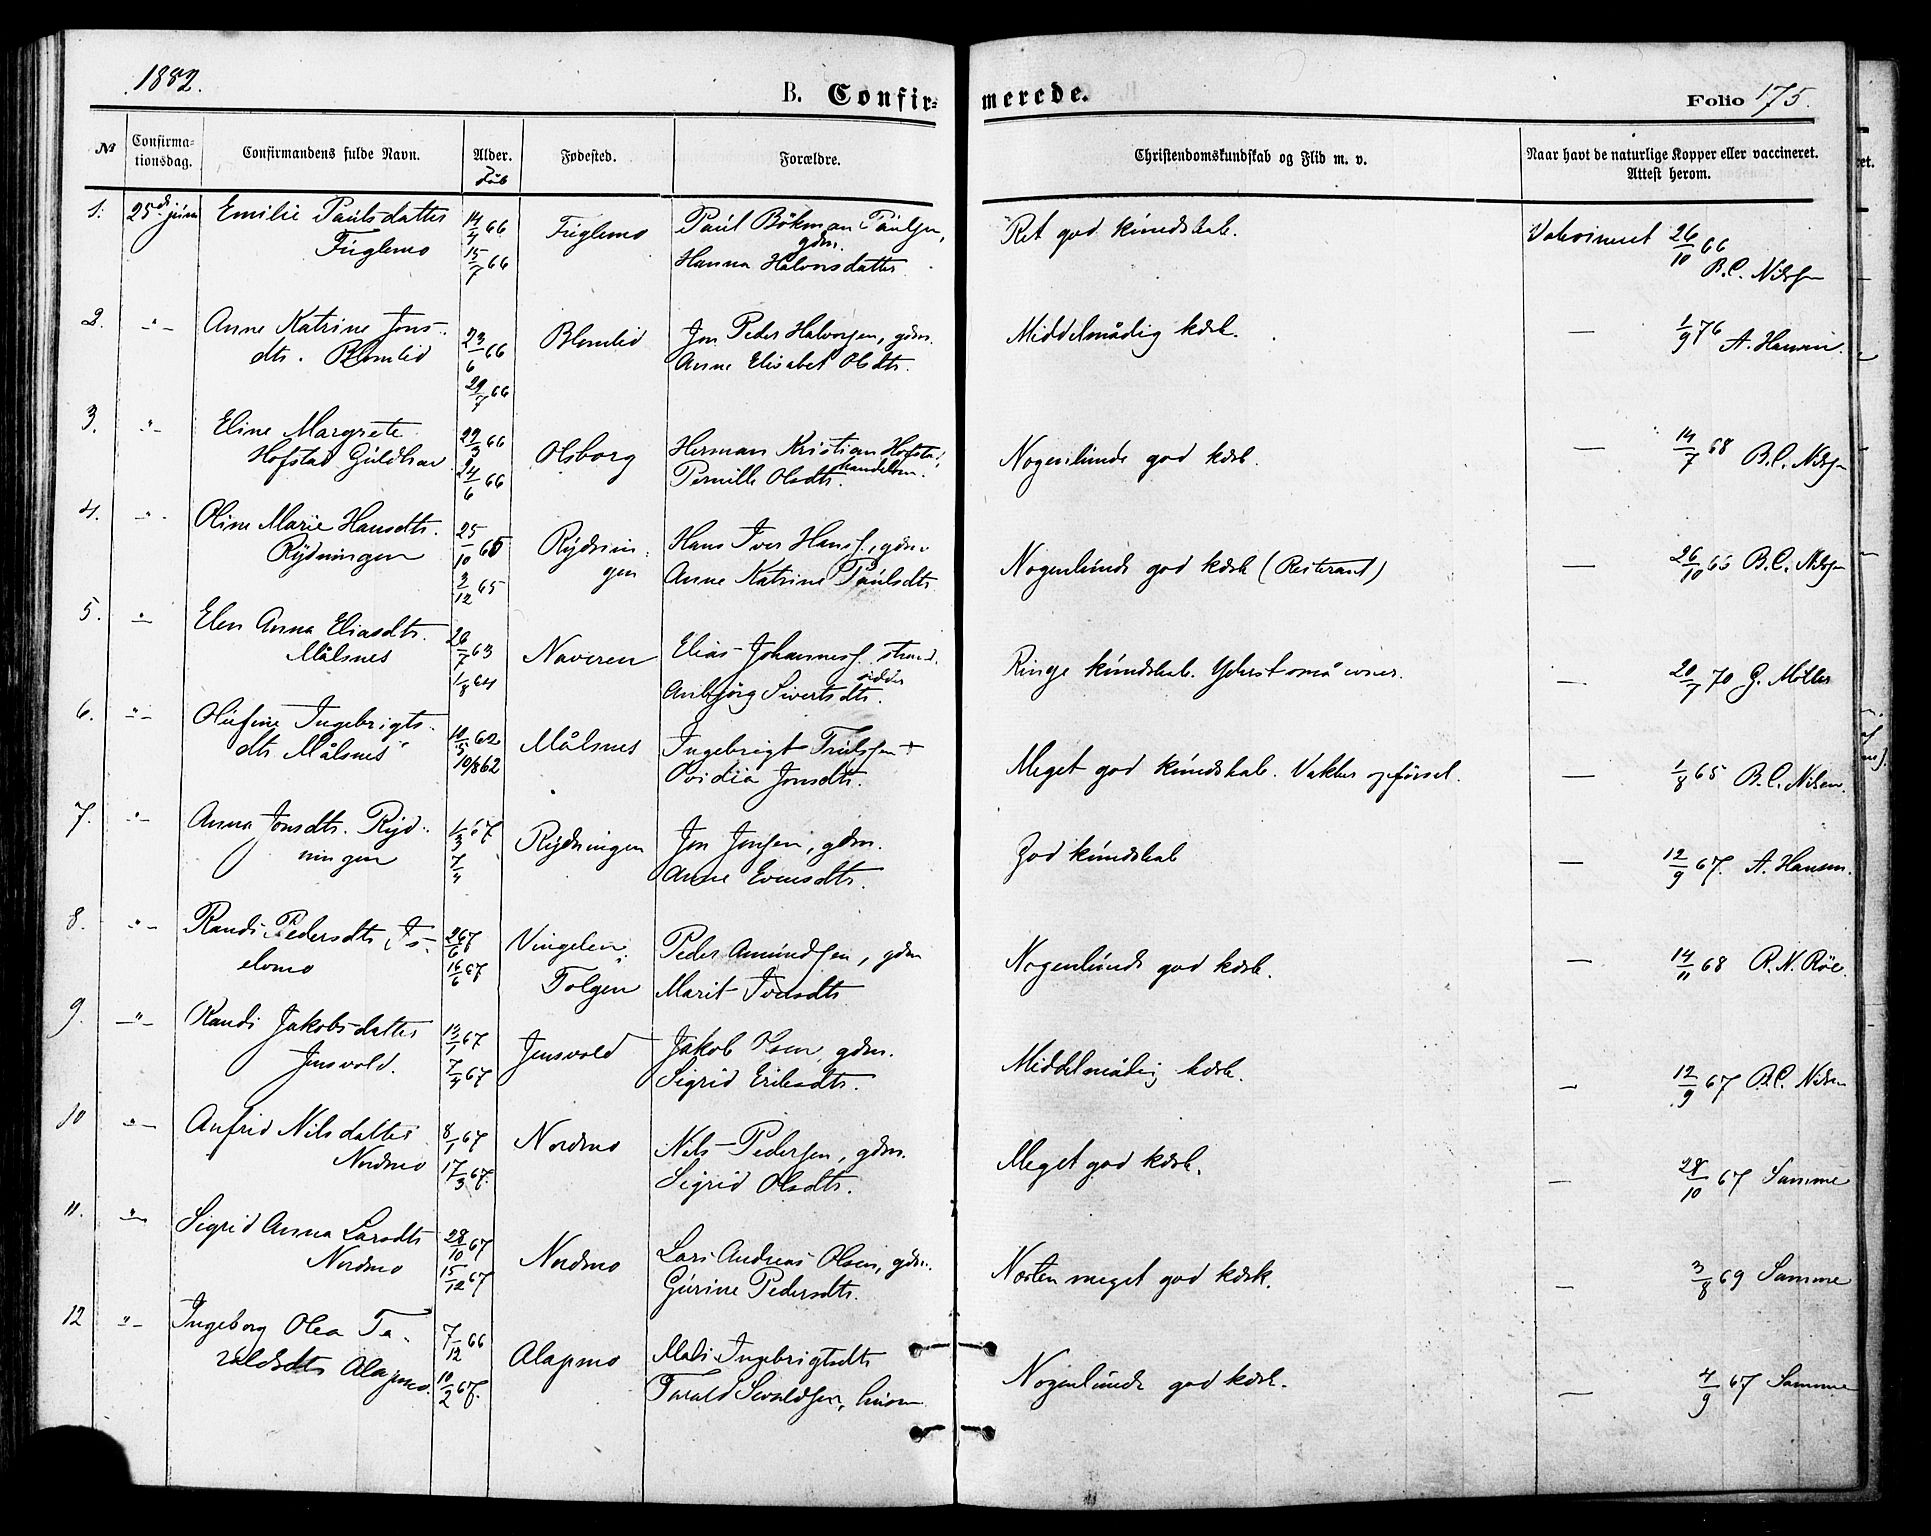 1882.
B. Confir-
merede.
Folio 175.
№
Confirma-
tionsdag.
Confirmandens fulde Navn.
Alder.
Dåb
Fødested.
Forældre.
Christendomskundskab og Flid m. v.
Naar havt de naturlige Kopper eller vaccineret.
Attest herom.
1. 25de juni Emilie Paulsdatter 14/4 66 Fuglemo Paul Bökman Paulsen, Ret god kundskab. Vakcineret 26/10 66
Fuglemo 15/7 66 gdm. B.C. Nilssen
Hanna Halvorsdatter
2. -"- Anne Katrine Jons- 23/6 66 Blomlid Jon Peder Halvorsen, gdm. Middelmådig kdsk. — 1/9 76 A. Hansen.
dtr. Blomlid 29/7 66 Anne Elisabet Olsdtr.
3. -"- Eline Margrete 29/3 66 Olsborg Herman Kristian Hofstad, Nogenlunde god kdsk. — 14/7 68 B.C. Nilsen
Hofstad Guldhav 24/6 66 Pernille Olsdtr. handelsm.
4. -"- Oline Marie Hansdtr. 25/10 65 Rydnin- Hans Iver Hans., gdm. Nogenlunde god kdsk (Resterant) — 26/10 65 B.C. Nilsen
Rydningen 3/12 65 gen Anne Katrine Paulsdtr
5. -"- Elen Anna Eliasdtr. 26/7 63 Naveren Elias Johannes. strand- Ringe kundskab. Yderst små evner. — 20/7 70 G. Möller
Målsnes 1/8 64 sidder
Anbjörg Sivertsdtr.
6. -"- Olufine Ingebrigts- 10/5 62 Målsnes Ingebrigt Trulssen + Meget god kundskab. Vakker opförsel. — 1/8 65 B.C. Nilsen.
dtr Målsnes 10/8 62 Ovidia Jonsdtr.
7. -"- Anna Jonsdtr. Ryd- 1/3 67 Rydningen Jon Jonsen, gdm. God kundskab — 12/9 67. A. Hansen.
ningen 7/4 Anne Evensdtr.
8. -"- Randi Pedersdtr Is- 2/6 67 Vingelen i Peder Amundsen, gdm Nogenlunde god kdsk. — 14/11 68 R.N. Röe.
elvmo 16/6 67 Tolgen Marit Iversdtr
9. -"- Randi Jakobsdatter 14/1 67 Jensvold Jakob Olsen, gdm. Middelmådig kdsk. — 12/9 67 B.C. Nilsen
Jensvold. 7/4 67 Sigrid Eriksdtr.
10 -"- Anfrid Nilsdatter 8/1 67 Nordmo Nils Pedersen, gdm. Meget god kdsk. — 28/10 67 Samme
Nordmo 17/3 67. Sigrid Olsdtr.
11. -"- Sigrid Anna Larsdtr 28/10 67 Nordmo Lars Andreas Olsen, gdm. Næsten meget god kdsk. — 3/8 69 Samme
Nordmo 15/12 67 Gurine Pedersdtr.
12 -"- Ingeborg Olea Ta- 7/12 66 Alapmo Mali Ingebrigtsdtr Nogenlunde god kdsk. — 4/9 67 Samme
raldsdtr Alapmo. 10/2 67. Tarald Sivaldsen,